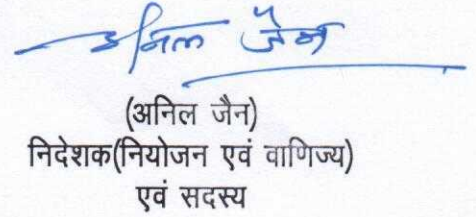 अनिल जैन
(अनिल जैन)
निदेशक(नियोजन एवं वाणिज्य)
एवं सदस्य